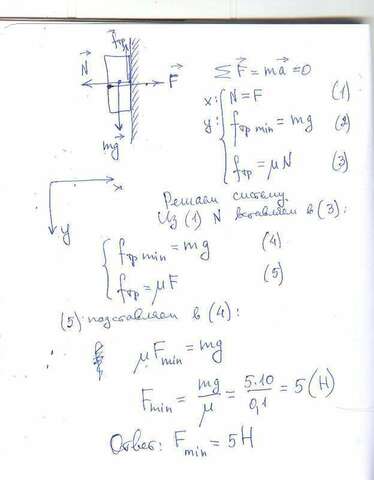 f⃗тр
N⃗
F⃗
mg⃗
x
y
∑F⃗ = ma⃗ = 0
x: N = F (1)
y: fтр min = mg (2)
fтр = μN (3)
Решаем систему
Из (1) N вставляем в (3):
fтр min = mg (4)
fтр = μF (5)
(5) подставляем в (4):
μFmin = mg
Fmin = mg/μ = 5·10/0,1 = 5 (Н)
Ответ: Fmin = 5Н